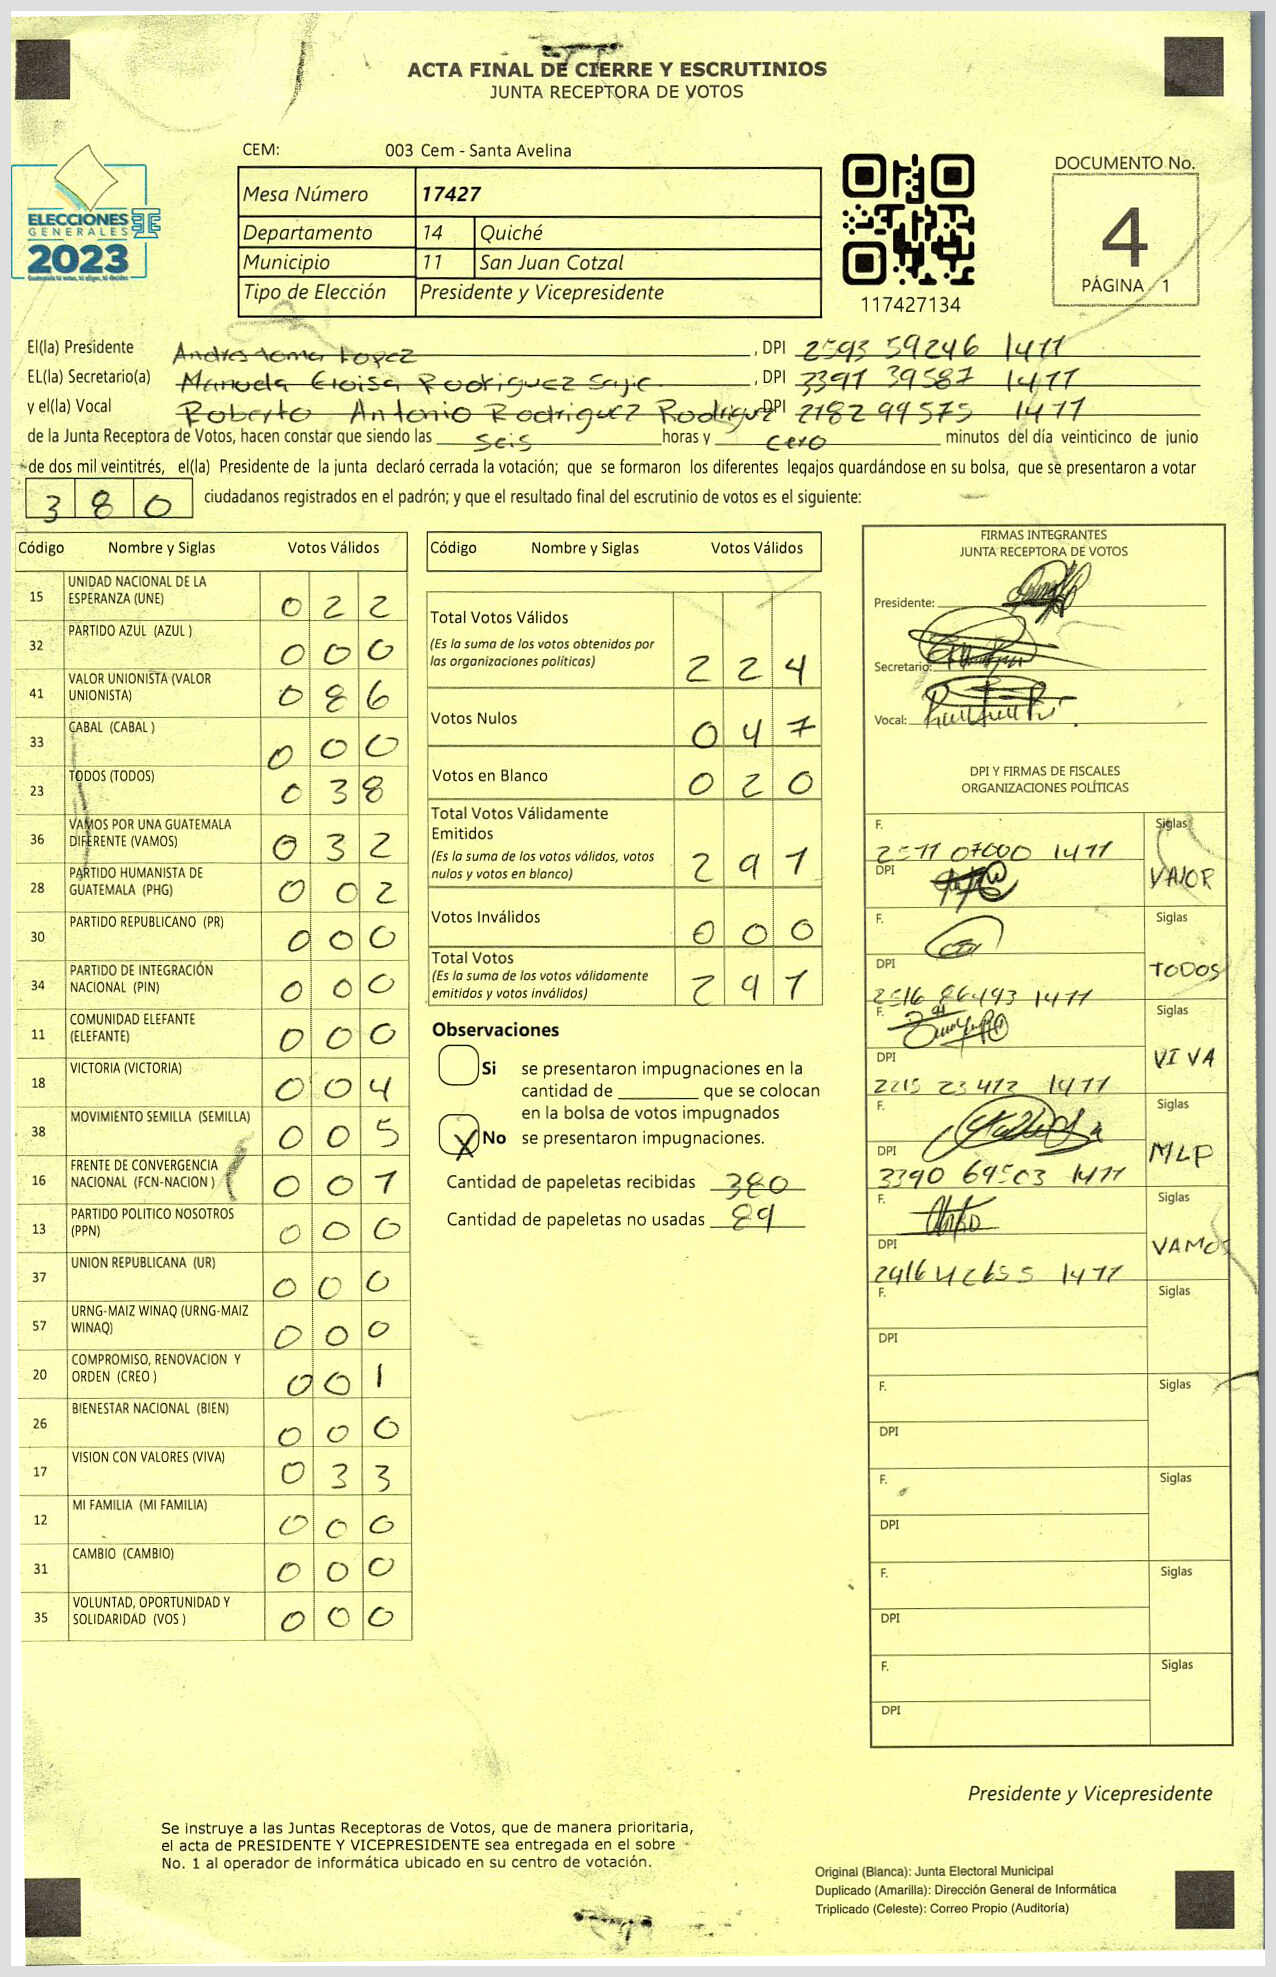 ACTA FINAL DE CIERRE Y ESCRUTINIOS
JUNTA RECEPTORA DE VOTOS
ELECCIONES
GENERALES
2023
CEM: 003 Cem - Santa Avelina
Mesa Número 17427
Departamento 14 Quiché
Municipio 11 San Juan Cotzal
Tipo de Elección Presidente y Vicepresidente
117427134
DOCUMENTO No.
4
PÁGINA 1
El(la) Presidente Lopez, DPI 2593 59246 1411
EL(la) Secretario(a) Manuela Eloisa Rodriguez, DPI 3391 39587 1411
y el(la) Vocal Roberto Antonio Rodriguez Rodriguez DPI 2182 99575 1411
de la Junta Receptora de Votos, hacen constar que siendo las seis horas y cero minutos del día veinticinco de junio
de dos mil veintitrés, el(la) Presidente de la junta declaró cerrada la votación; que se formaron los diferentes legajos quardándose en su bolsa, que se presentaron a votar
380 ciudadanos registrados en el padrón; y que el resultado final del escrutinio de votos es el siguiente:
Código Nombre y Siglas Votos Válidos
15 UNIDAD NACIONAL DE LA ESPERANZA (UNE) 022
32 PARTIDO AZUL (AZUL ) 000
41 VALOR UNIONISTA (VALOR UNIONISTA) 086
33 CABAL (CABAL ) 000
23 TODOS (TODOS) 038
36 VAMOS POR UNA GUATEMALA DIFERENTE (VAMOS) 032
28 PARTIDO HUMANISTA DE GUATEMALA (PHG) 002
30 PARTIDO REPUBLICANO (PR) 000
34 PARTIDO DE INTEGRACIÓN NACIONAL (PIN) 000
11 COMUNIDAD ELEFANTE (ELEFANTE) 000
18 VICTORIA (VICTORIA) 004
38 MOVIMIENTO SEMILLA (SEMILLA) 005
16 FRENTE DE CONVERGENCIA NACIONAL (FCN-NACION ) 001
13 PARTIDO POLITICO NOSOTROS (PPN) 000
37 UNION REPUBLICANA (UR) 000
57 URNG-MAIZ WINAQ (URNG-MAIZ WINAQ) 000
20 COMPROMISO, RENOVACION Y ORDEN (CREO ) 001
26 BIENESTAR NACIONAL (BIEN) 000
17 VISION CON VALORES (VIVA) 033
12 MI FAMILIA (MI FAMILIA) 000
31 CAMBIO (CAMBIO) 000
35 VOLUNTAD, OPORTUNIDAD Y SOLIDARIDAD (VOS ) 000
Código Nombre y Siglas Votos Válidos
Total Votos Válidos
(Es la suma de los votos obtenidos por
las organizaciones políticas) 224
Votos Nulos 047
Votos en Blanco 020
Total Votos Válidamente
Emitidos
(Es la suma de los votos válidos, votos
nulos y votos en blanco) 291
Votos Inválidos 000
Total Votos
(Es la suma de los votos válidamente
emitidos y votos inválidos) 291
Observaciones
Si se presentaron impugnaciones en la
cantidad de ________ que se colocan
en la bolsa de votos impugnados
X No se presentaron impugnaciones.
Cantidad de papeletas recibidas 380
Cantidad de papeletas no usadas 89
FIRMAS INTEGRANTES
JUNTA RECEPTORA DE VOTOS
Presidente:
Secretario:
Vocal:
DPI Y FIRMAS DE FISCALES
ORGANIZACIONES POLÍTICAS
F. 1411 Siglas
DPI VALOR
F. Siglas
DPI 1411 TODOS
F. Siglas
DPI 1411 VIVA
F. Siglas
DPI 3390 69503 1411 MLP
F. Siglas
DPI 1411 VAMOS
F. Siglas
DPI
F. Siglas
DPI
F. Siglas
DPI
F. Siglas
DPI
F. Siglas
DPI
Presidente y Vicepresidente
Se instruye a las Juntas Receptoras de Votos, que de manera prioritaria,
el acta de PRESIDENTE Y VICEPRESIDENTE sea entregada en el sobre
No. 1 al operador de informática ubicado en su centro de votación.
Original (Blanca): Junta Electoral Municipal
Duplicado (Amarilla): Dirección General de Informática
Triplicado (Celeste): Correo Propio (Auditoría)